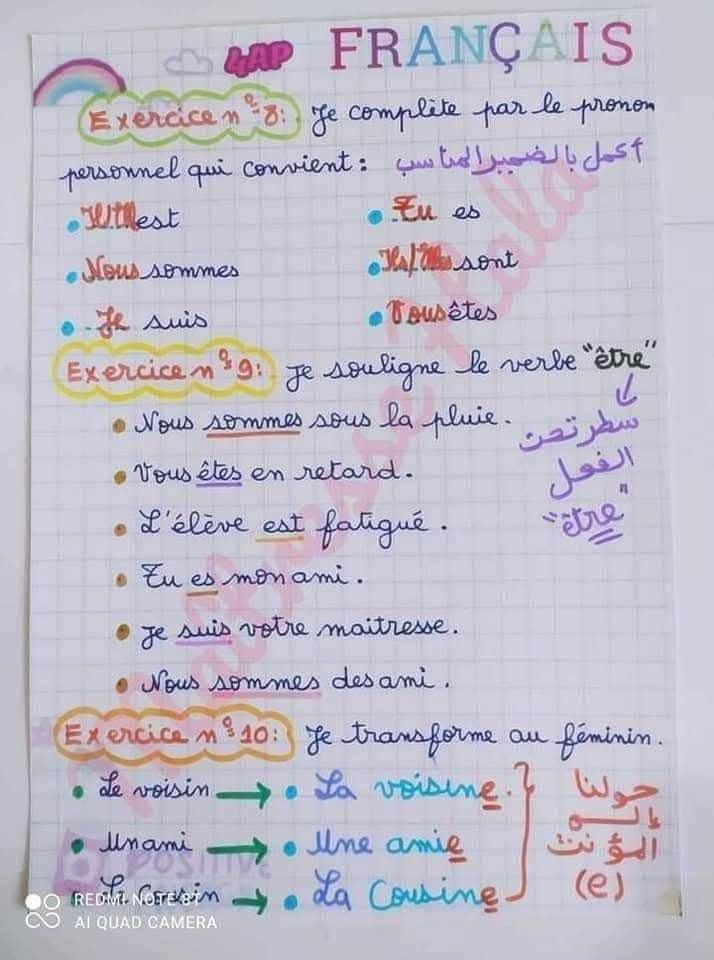 4AP FRANÇAIS
Exercice n° 8: Je complète par le pronom
personnel qui convient : أكمل بالضمير المناسب
est
Tu es
Nous sommes
Ils/Elles sont
Je suis
Vous êtes
Exercice n° 9: Je souligne le verbe "être"
Nous sommes sous la pluie.
سطر تحت
Vous êtes en retard.
الفعل
L'élève est fatigué.
"être"
Tu es mon ami.
Je suis votre maitresse.
Nous sommes des ami.
Exercice n° 10: Je transforme au féminin.
Le voisin → La voisine.
حولنا
إلى
Un ami → Une amie
المؤنث
Le Cousin → La Cousine
(e)
POSITIVE
REDMI NOTE 8T
AI QUAD CAMERA